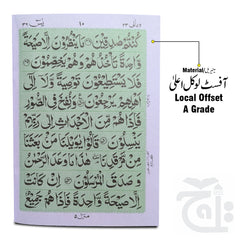 یٰسٓ ٣٦
١٠
ومالی ٢٣
كُنْتُمْ صٰدِقِيْنَ مَا يَنْظُرُوْنَ اِلَّا صَيْحَةً
وَّاحِدَةً تَاْخُذُهُمْ وَهُمْ يَخِصِّمُوْنَ
فَلَا يَسْتَطِيْعُوْنَ تَوْصِيَةً وَّلَاۤ اِلٰٓى
اَهْلِهِمْ يَرْجِعُوْنَ وَنُفِخَ فِى الصُّوْرِ
فَاِذَا هُمْ مِّنَ الْاَجْدَاثِ اِلٰى رَبِّهِمْ
يَنْسِلُوْنَ قَالُوْا يٰوَيْلَنَا مَنْۢ بَعَثَنَا
مِنْ مَّرْقَدِنَا هٰذَا مَا وَعَدَ الرَّحْمٰنُ
وَصَدَقَ الْمُرْسَلُوْنَ اِنْ كَانَتْ
اِلَّا صَيْحَةً وَّاحِدَةً فَاِذَا هُمْ جَمِيْعٌ
منزل ٥
Material/میٹریل
آفسٹ لوکل اعلیٰ
Local Offset
A Grade